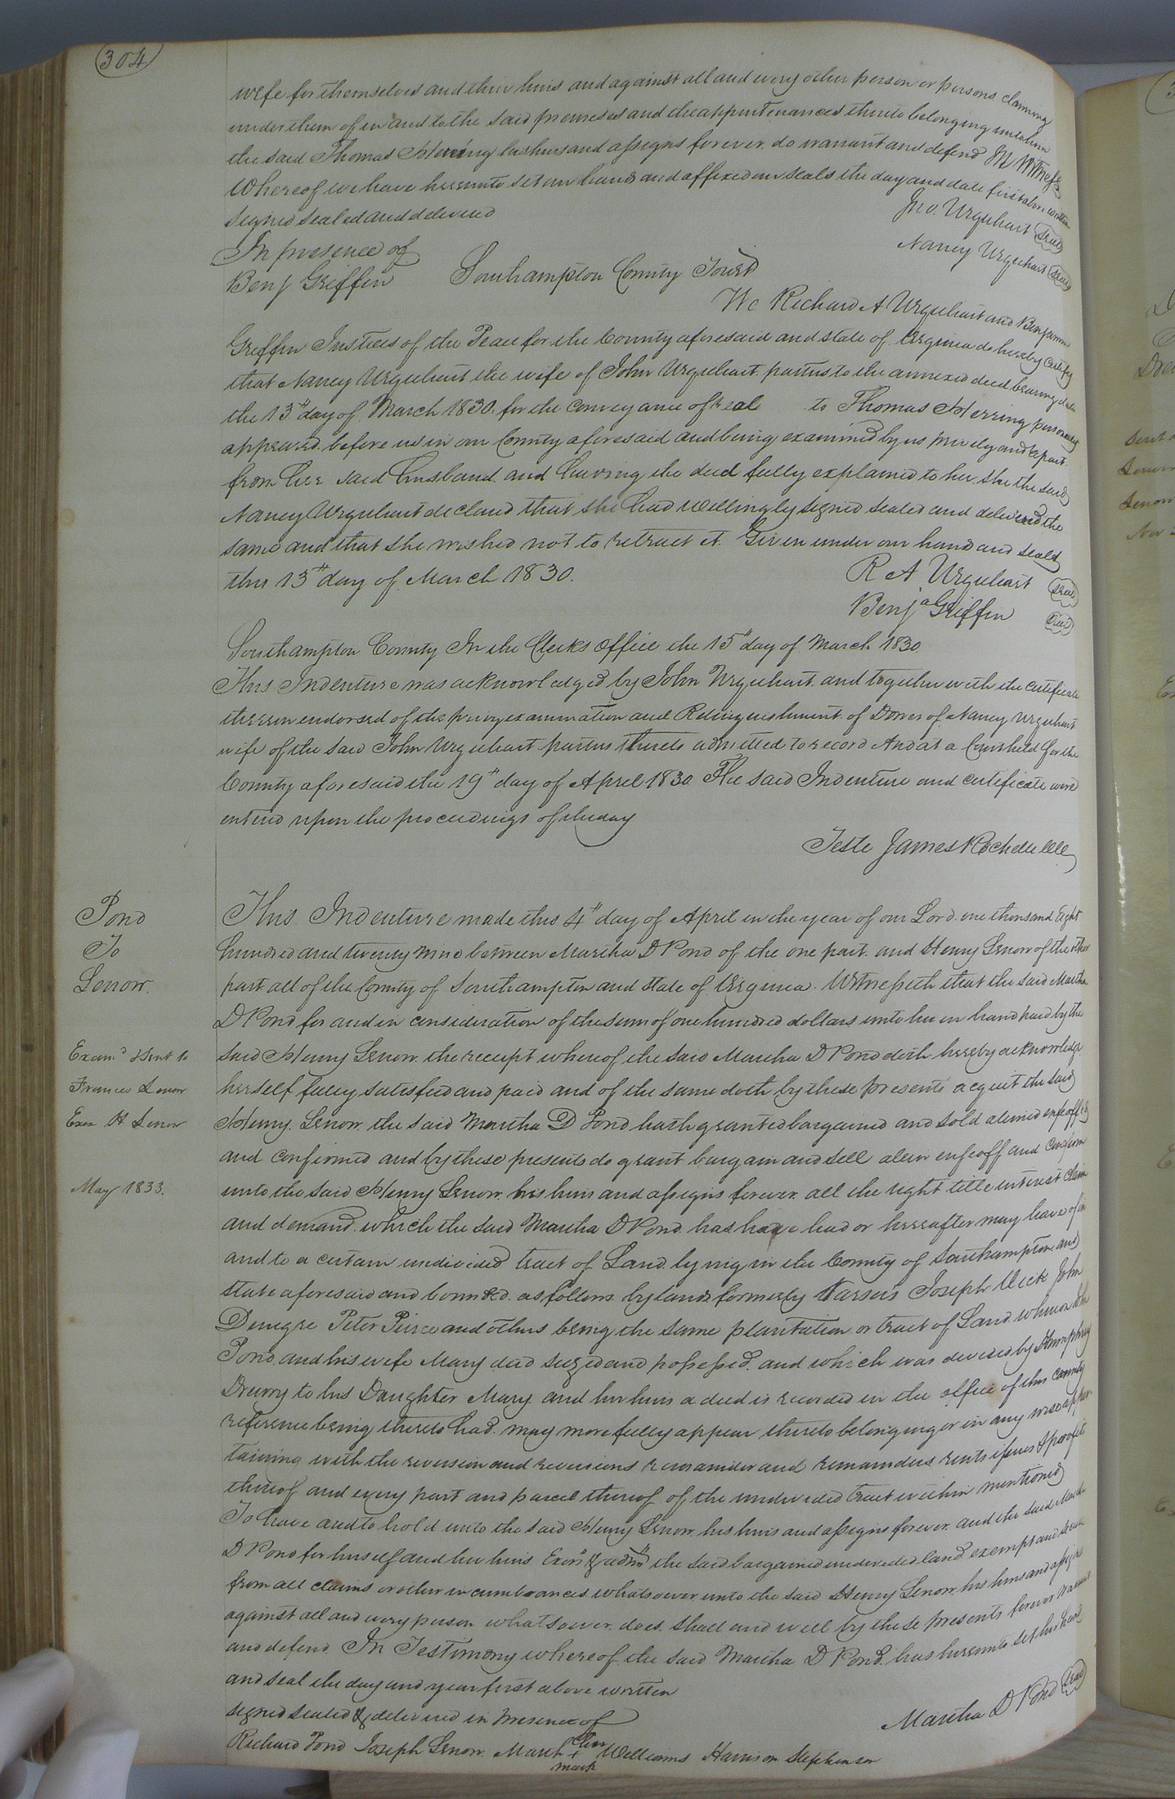 304
wife for themselves and their heirs and against all and every other person or persons claiming
under them of in and to the said premises and the appurtenances thereto belonging unto him
the said Thomas Herring his heirs and assigns forever do warrant and defend In Witness
Whereof we have hereunto set our hands and affixed our seals the day and date first above written
signed sealed and delivered
Jno. Urquhart Seal
In presence of
Nancy Urquhart Seal
Benj Griffin
Southampton County Towit
We Richard A Urquhart and Benjamin
Griffin Justices of the Peace for the County aforesaid and state of Virginia do hereby certify
that Nancy Urquhart the wife of John Urquhart parties to the annexed deed bearing date
the 13th day of March 1830 for the conveyance of real to Thomas Herring personally
appeared before us in our County aforesaid and being examined by us privily and apart
from her said husband and having the deed fully explained to her she the said
Nancy Urquhart declared that she had willingly signed sealed and delivered the
same and that she wished not to retract it. Given under our hand and seals
this 13th day of March 1830.
R A Urquhart Seal
Benja Griffin Seal
Southampton County In the Clerks office the 15th day of March 1830
This Indenture was acknowledged by John Urquhart and together with the certificate
thereon endorsed of the privy examination and Relinquishment of Dower of Nancy Urquhart
wife of the said John Urquhart parties thereto admitted to record And at a Court held for the
County aforesaid the 19th day of April 1830 The said Indenture and certificate were
entered upon the proceedings of the day
Teste James Rochelle
Pond
To
Lenow.
Examd & Sent to
Frances Lenow
Exex H Lenow
May 1833.
This Indenture made this 4th day of April in the year of our Lord one thousand Eight
hundred and twenty nine between Martha D Pond of the one part and Henry Lenow of the other
part all of the County of Southampton and State of Virginia. Witnesseth that the said Martha
D Pond for and in consideration of the sum of one hundred dollars unto her in hand paid by the
said Henry Lenow the receipt whereof the said Martha D Pond doth hereby acknowledge
herself fully satisfied and paid and of the same doth by these presents acquit the said
Henry Lenow the said Martha D Pond hath granted bargained and sold aliened enfeoffed
and confirmed and by these presents do grant bargain and sell alien enfeoff and confirm
unto the said Henry Lenow his heirs and assigns forever all the right title interest claim
and demand which the said Martha D Pond has have had or hereafter may have of in
and to a certain undivided tract of Land lying in the County of Southampton and
State aforesaid and bounded as follows by lands formerly Joseph Vick John
Denegre Peter Peirce and others being the same plantation or tract of Land whereon John
Pond and his wife Mary died seized and possessed and which was devised by Humphrey
Drewry to his Daughter Mary and her heirs a deed is recorded in the office of this County
reference being thereto had may more fully appear thereto belonging or in any wise apper
taining with the reversion and reversions remainder and remainders rents issues & profits
thereof and every part and parcel thereof of the undivided tract within mentioned
To have and to hold unto the said Henry Lenow his heirs and assigns forever and the said Martha
D Pond for herself and her heirs Exors & admrs the said bargained undivided land exempt and
from all claims or other incumbrances whatsoever unto the said Henry Lenow his heirs and assigns
against all and every person whatsoever does shall and will by these presents forever warrant
and defend In Testimony whereof the said Martha D Pond has hereunto set his hand
and seal the day and year first above written
signed sealed & delivered in Presence of
Martha D Pond Seal
Richard Pond Joseph Lenow Williams Harrison Stephenson
mark